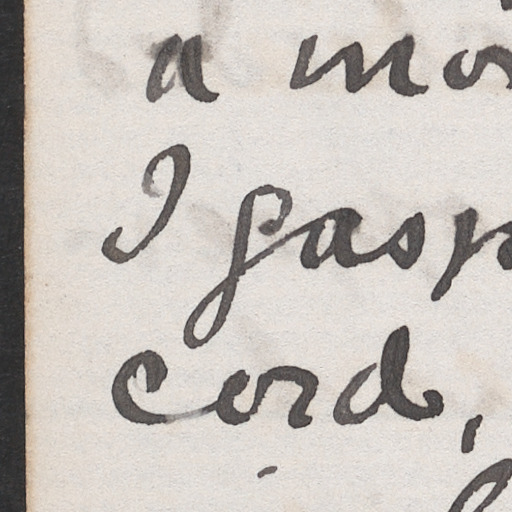 a mo
I gasp
cord,